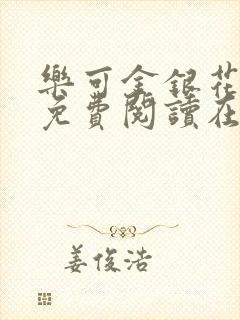 樂可金銀花
免費閱讀在
姜俊浩